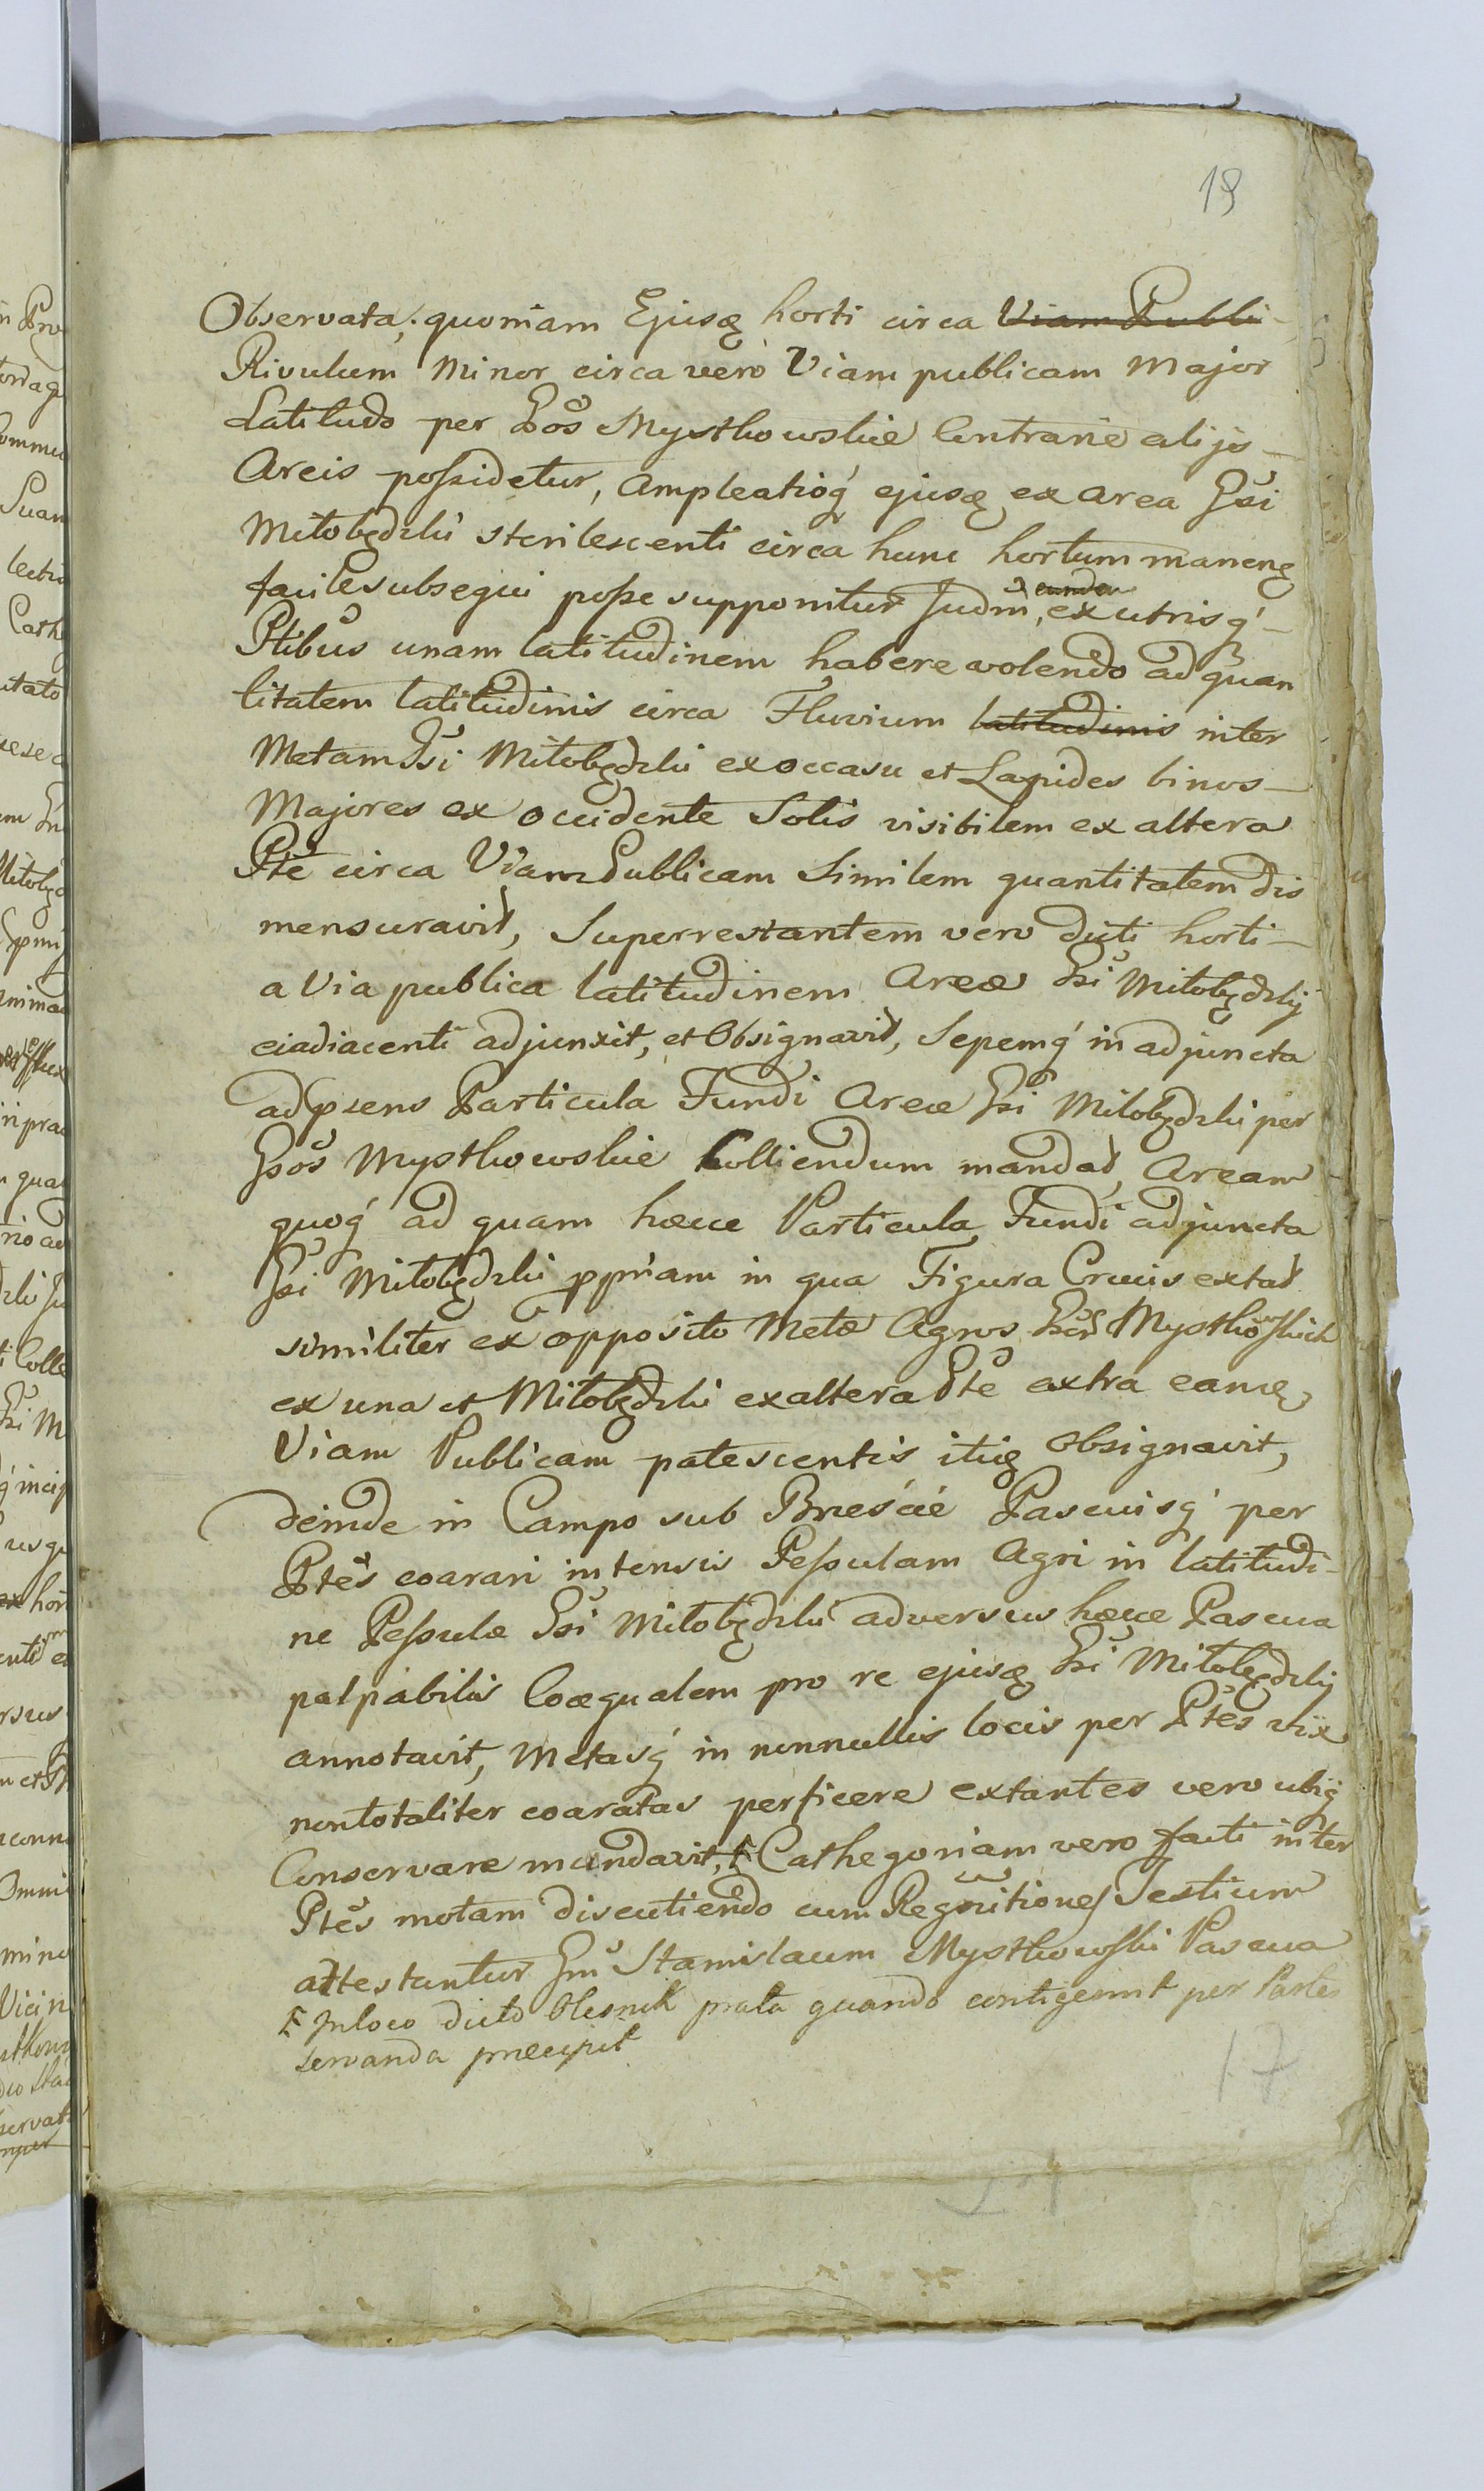 19
Observata, quoniam Ejusꝫ horti circa Viam Publi-
Rivulum Minor circa verò Viam publicam Major
Latitudo per Gsos Mystkowskie Contrarie alijs
Areis possidetur, Ampleatioq́ ejusꝫ ex area Gsi
Miłobędzki sterilescenti circa hunc hortum manenꝫ
facile subsequi posse supponitur Judm̃, ex utrisq́
Ptibus unam latitudinem habere volendo ad quan
titatem latitudinis circa Fluvium latitudinis inter
Metam Gsi Miłobędzki ex occasu et Lapides binos
Majores ex Occidente Solis visibilem ex altera
Pte circa Viam Publicam Similem quantitatem dis
mensuravit, Superrestantem vero dicti horti
a Via publica latitudinem Areæ Gsi Miłobędzkij
eiadiacenti adjunxit, et Obsignavit, Sepemq́ in adjuncta
adpsens Particula Fundi Areæ Gsi Miłobędzki per
Gsos Mystkowskie tolliendum mandat, Aream
quoq́ ad quam hæcce Particula Fundi adjuncta
Gsi Miłobędzki ppriam in qua Figura Crucis extat
similiter ex opposito Metæ Agros Gsor Mystkowskich
ex una et Miłobędzki ex altera Pte extra eamꝫ
Viam Publicam patescentis itiꝫ Obsignavit,
deinde in Campo sub Brzeście Pascuisq́ per
Ptes coarari intensis Pessulam Agri in latitudi-
ne Pessulæ Gsi Miłobędzki adversus hæcce Pascua
palpabilis Coæqualem pro re ejusꝫ Gsi Miłobędzkij
annotavit, Metasq́ in nonnullis locis per Ptes vix
nontotaliter coaratas perficere extantes vero ubiq́
Conservare mandavit, Ⱡ Cathegoriam vero facti inter
Ptes motam discutiendo cum Regnitione Testium
attestantur Gm Stanislaum Mystkowski Pascua
Ⱡ In loco dicto Olesnik prata quando contigerint per Partes
servanda præcipit
17